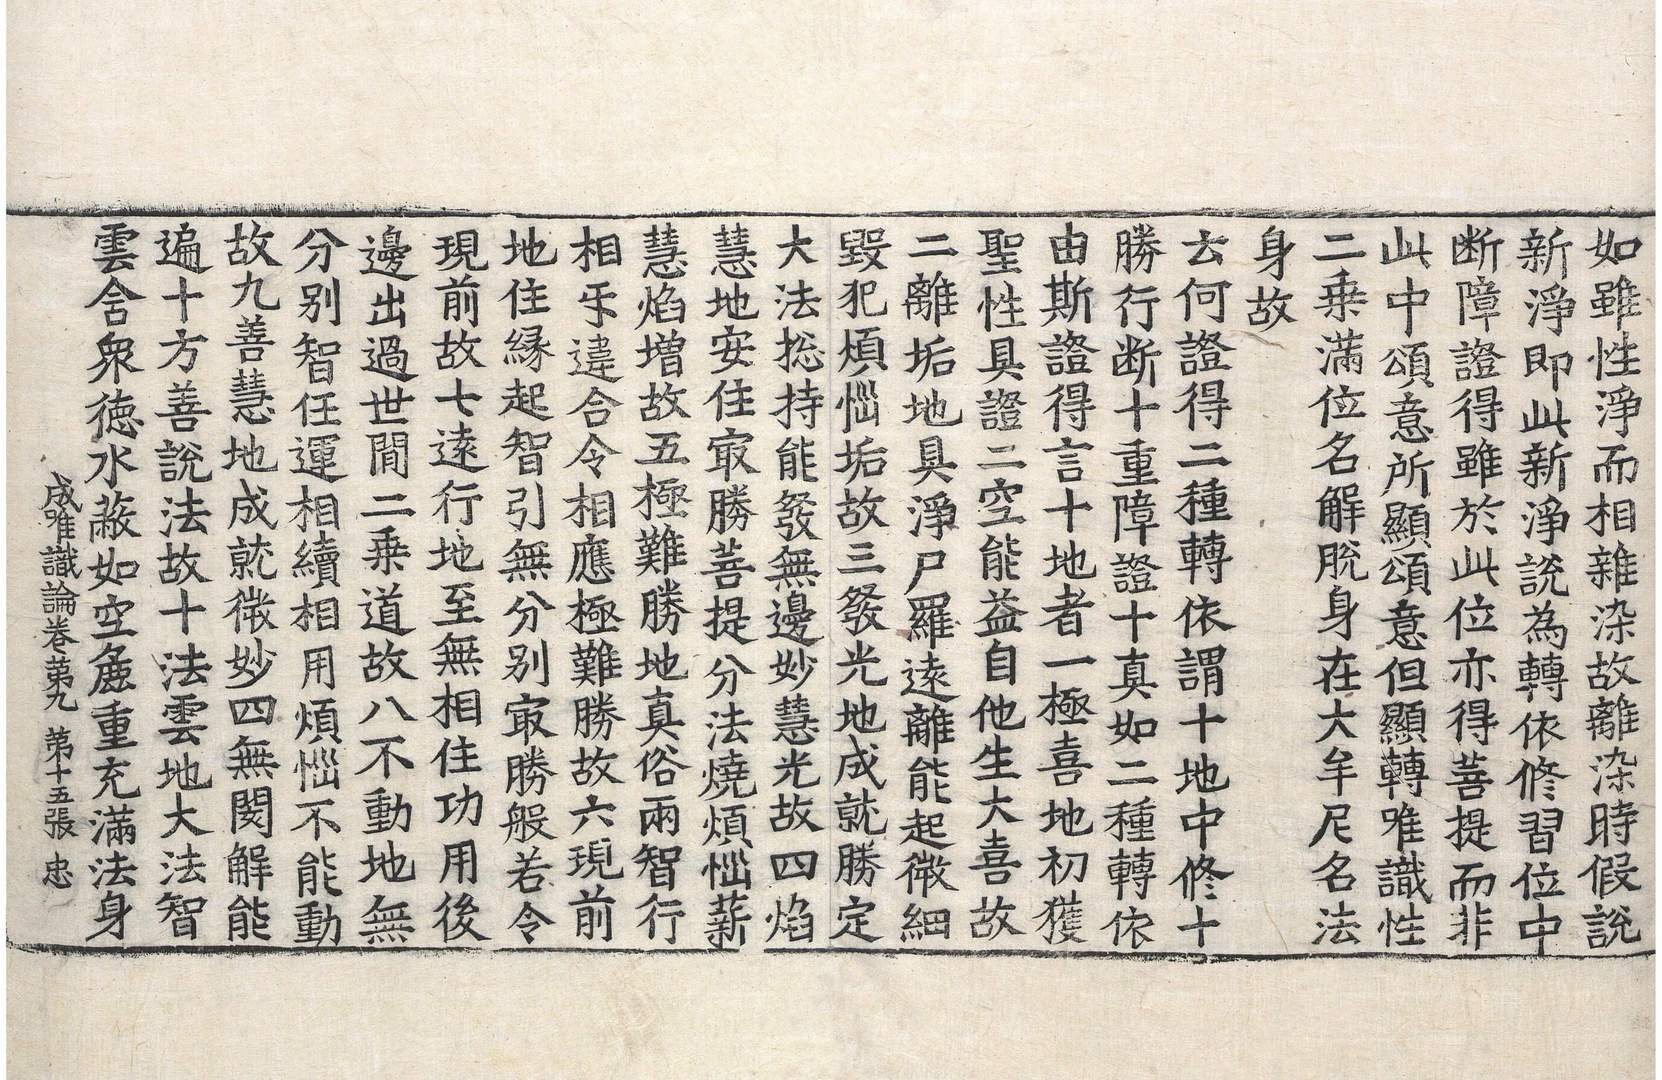 如雖性淨而相雜染故離染時假說
新淨即此新淨說為轉依修習位中
断障證得雖於此位亦得菩提而非
此中頌意所顯頌意但顯轉唯識性
二乗滿位名解脫身在大牟尼名法
身故
云何證得二種轉依謂十地中修十
勝行断十重障證十真如二種轉依
由斯證得言十地者一極喜地初獲
聖性具證二空能益自他生大喜故
二離垢地具淨尸羅遠離能起微細
毀犯煩惱垢故三發光地成就勝定
大法捴持能發無邊妙慧光故四焰
慧地安住㝡勝菩提分法燒煩惱薪
慧焰増故五極難勝地真俗兩智行
相㸦違合令相應極難勝故六現前
地住縁起智引無分別㝡勝般若令
現前故七遠行地至無相住功用後
邊出過世間二乗道故八不動地無
分別智任運相續相用煩惱不能動
故九善慧地成就微妙四無閡解能
遍十方善說法故十法雲地大法智
雲含衆徳水蔽如空麁重充滿法身
成唯識論卷苐九 苐十五張 忠